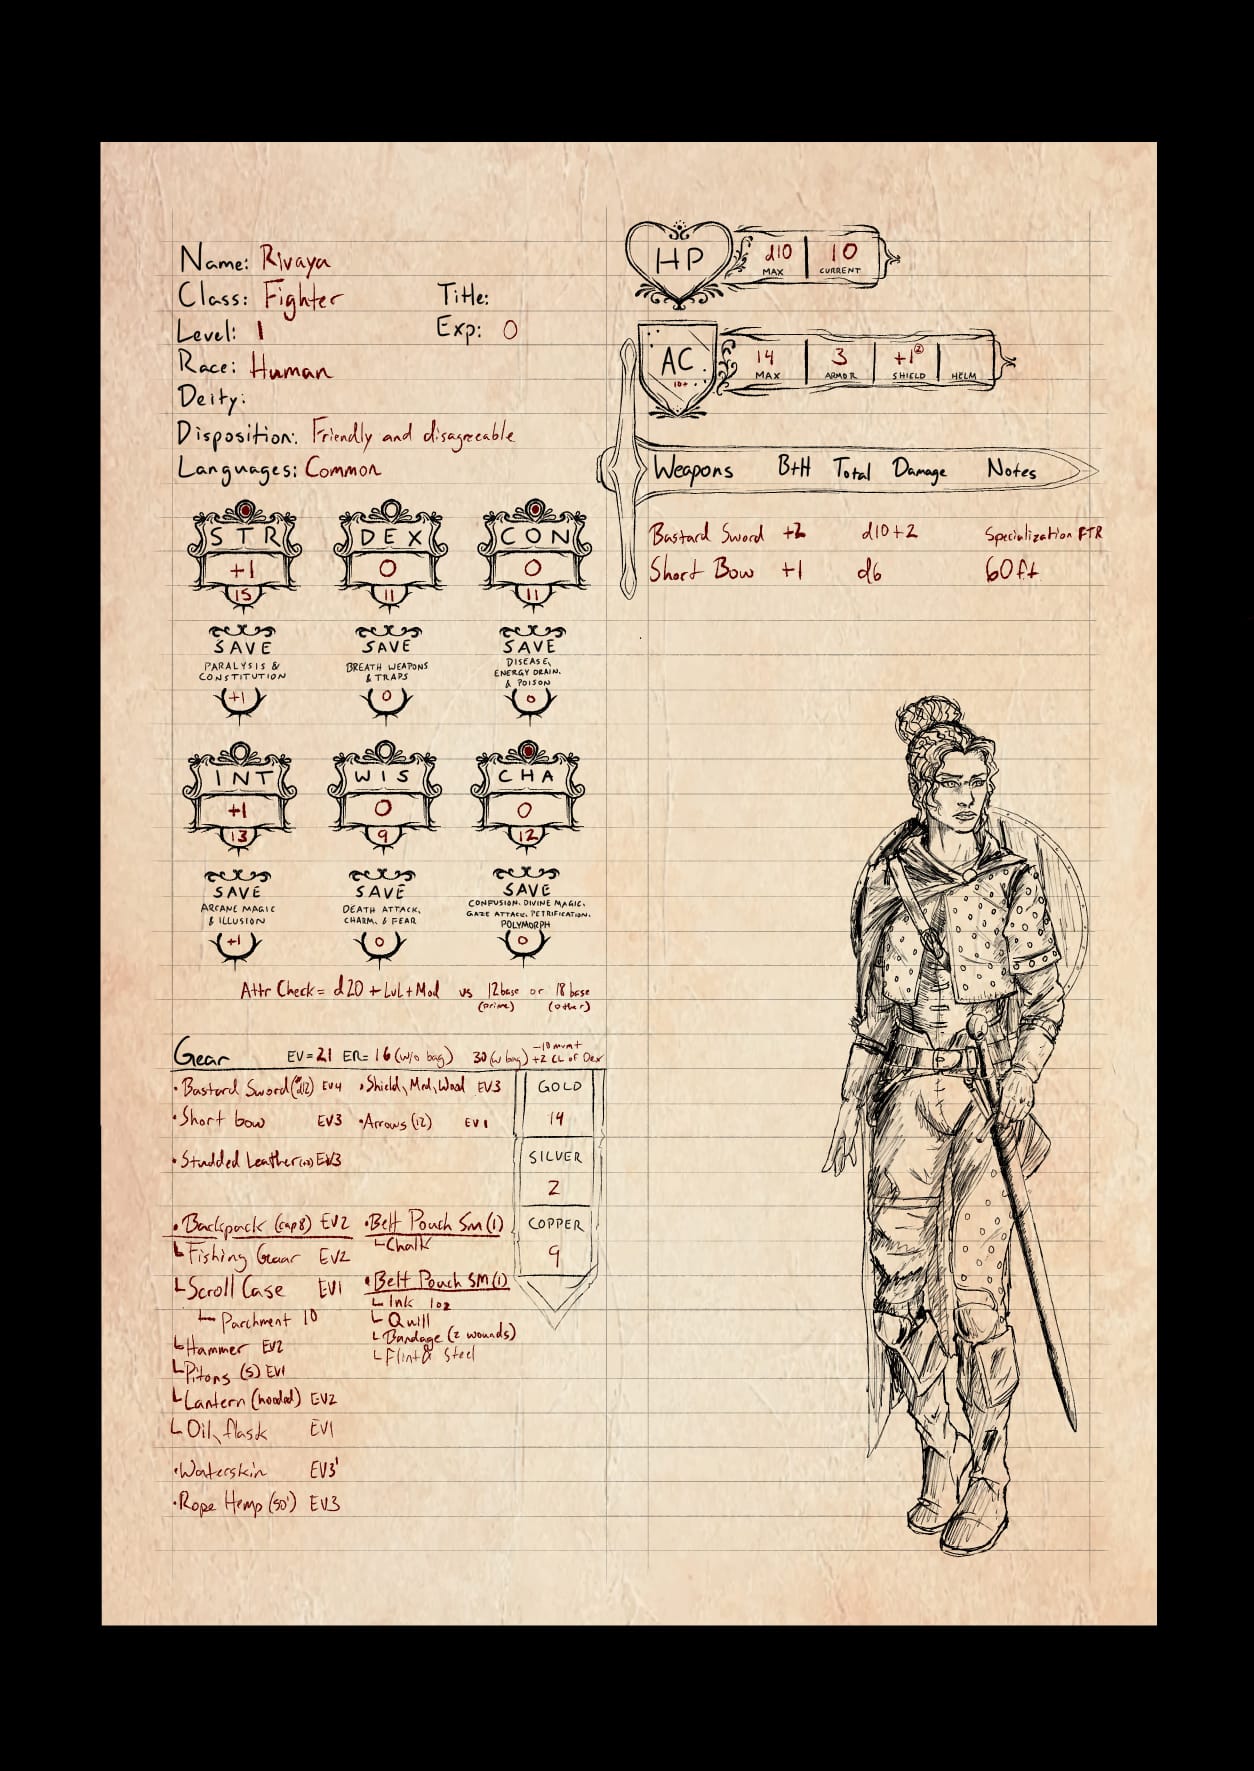 Name: Rivaya
Class: Fighter
Title:
Level: 1
Exp: 0
Race: Human
Deity:
Disposition: Friendly and disagreeable
Languages: Common
HP
d10 10
MAX CURRENT
AC
10+
14 3 +1②
MAX ARMOR SHIELD HELM
Weapons B+H Total Damage Notes
Bastard Sword +2 d10+2 Specialization FTR
Short Bow +1 d6 60ft
STR DEX CON
+1 0 0
15 11 11
SAVE SAVE SAVE
PARALYSIS & CONSTITUTION
BREATH WEAPONS & TRAPS
DISEASE, ENERGY DRAIN, & POISON
+1 0 0
INT WIS CHA
+1 0 0
13 9 12
SAVE SAVE SAVE
ARCANE MAGIC & ILLUSION
DEATH ATTACK, CHARM, & FEAR
CONFUSION, DIVINE MAGIC, GAZE ATTACK, PETRIFICATION, POLYMORPH
+1 0 0
Attr Check = d20 + LvL + Mod vs 12 base or 18 base
(prime) (other)
Gear EV=21 ER=16 (w/o bag) 30 (w bag) -10 mvmt
+2 CL of Dex
• Bastard Sword EV4 • Shield, Med, Wood EV3
• Short bow EV3 • Arrows (12) EV1
• Studded Leather EV3
GOLD
14
SILVER
2
COPPER
9
• Backpack (cap 8) EV2
Fishing Gear EV2
Scroll Case EV1
Parchment 10
Hammer EV2
Pitons (5) EV1
Lantern (hooded) EV2
Oil, flask EV1
• Waterskin EV3
• Rope Hemp (50') EV3
• Belt Pouch Sm (1)
Chalk
• Belt Pouch SM (1)
Ink 1oz
Quill
Bandage (2 wounds)
Flint & Steel